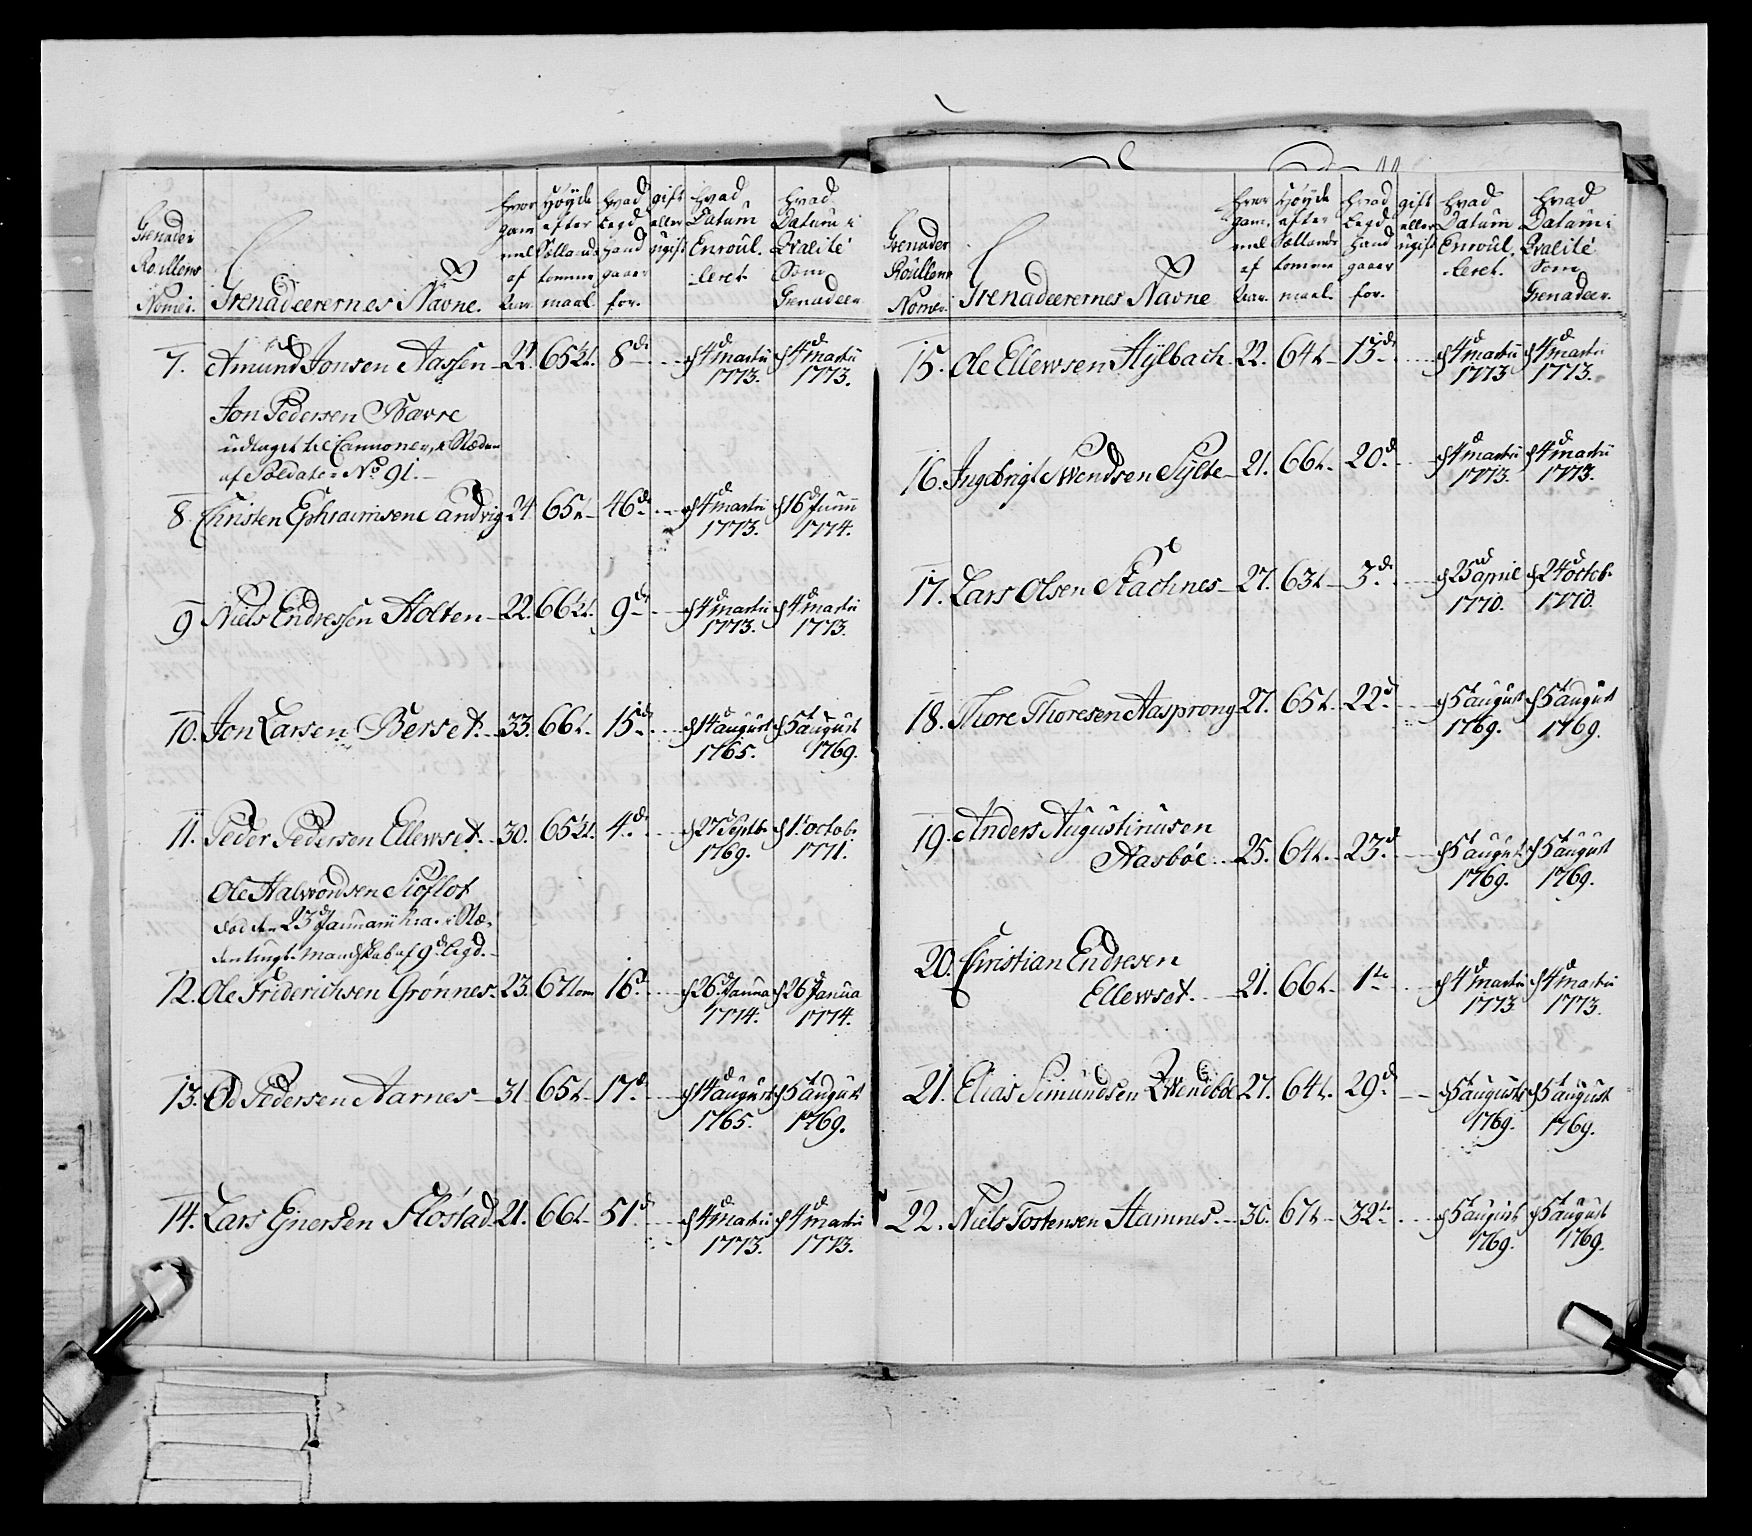 Grenadeer Roullens Nomer.
Grenadeerernes Navne.
hvor gammel af Aar.
Høyde efter Sællands tomme maal
hvad Legd hand gaaer for.
gift eller ugift
hvad Datum Enroul-leret
hvad Datum i Qvalité Som Grenadeer
7. Amund Jonsen Aassen 22. 65½t. 8de d 4de martii 1773. d 4de martii 1773.
Jon Pedersen Bavre
udtaget til Cannoneer, i Stæden
af Soldater No 91.
8. Christen Ephraimsen Landvig 24 65t. 46de d 4de martii 1773. d 16d Junii 1774.
9 Niels Endressen Holten 22. 66½t. 9de d 4de martii 1773. d 4de martii 1773.
10. Jon Larsen Berset 33. 66t. 15de d 14de august 1765. d 5t august 1769.
11. Peder Pedersen Ellewset. 30. 65½t. 4de d 27d Septb. 1769. d 1t octob. 1771.
Ole Halvordsen Sioflot
død den 23d Januarii hvor i Stæ-
den ungt Mandskab af 9de Legd.
12. Ole Friderichsen Grønnes. 23. 67tom 16d d 26d Janua 1774. d 26d Janua 1774.
13. Od Pedersen Aarnes 31 65t 17d d 14d august 1765. d 5t august 1769.
14. Lars Ejnersen Fløstad 21. 66t 51d d 4d martii 1773. d 4d martii 1773.
Grenadeer Roullens Nomer.
Grenadeerernes Navne
hvor gammel af Aar.
Høyde efter Sællands tomme maal.
hvad Legd hand gaaer for.
gift eller ugift
hvad Datum Enroul-leret.
hvad Datum i Qvalité Som Grenadeer.
15. Ole Ellewsen Hylbach 22. 64t 13de d 4d martii 1773 d 4d martii 1773.
16. Ingebrigt Swendsen Sylte 21. 66t. 20d d 4d martii 1773. d 4d martii 1773.
17. Lars Olsen Stachnes 27. 63t 3de d 25d april 1770. d 24d octob. 1770.
18. Thore Thoresen Aasprong 27. 65t. 22d d 5t august 1769. d 5t august 1769.
19. Anders Augustinusen
Aasbøe 25. 64t. 23d d 5t august 1769. d 5t august 1769.
20. Christian Endresen
Ellewset. 21. 66t. 1te d 4d martii 1773 d 4d martii 1773.
21. Elias Simundsen Qwendbøe 27. 64t. 29d d 5t august 1769. d 5t august 1769.
22. Niels Tostensen Hamnes. 30. 67t 32te d 5t august 1769. d 5t august 1769.